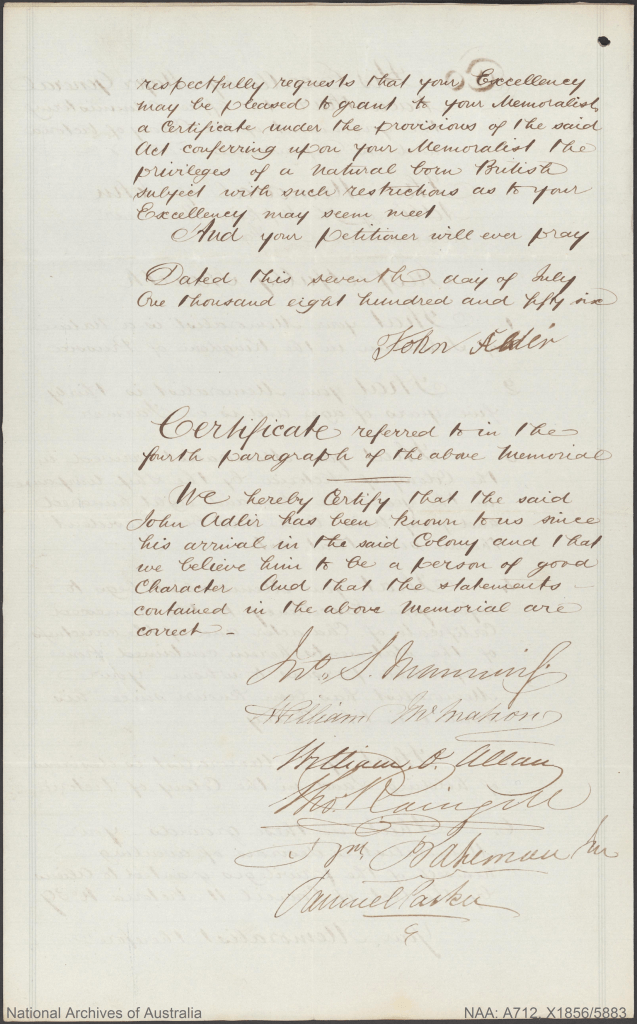 respectfully requests that your Excellency
may be pleased to grant to your Memoralist
a Certificate under the provisions of the said
Act conferring upon your Memoralist the
privileges of a natural born British
subject with such restrictions as to your
Excellency may seem meet
And your petitioner will ever pray
Dated this seventh day of July
One thousand eight hundred and fifty six
John Adlir
Certificate referred to in the
fourth paragraph of the above Memorial
We hereby Certify that the said
John Adlir has been known to us since
his arrival in the said Colony and that
we believe him to be a person of good
Character And that the statements
contained in the above Memorial are
correct -
S. Manning
William McMahon
William O. Allan
Thos.
Bakeman
Samuel Parker
National Archives of Australia
NAA: A712, X1856/5883